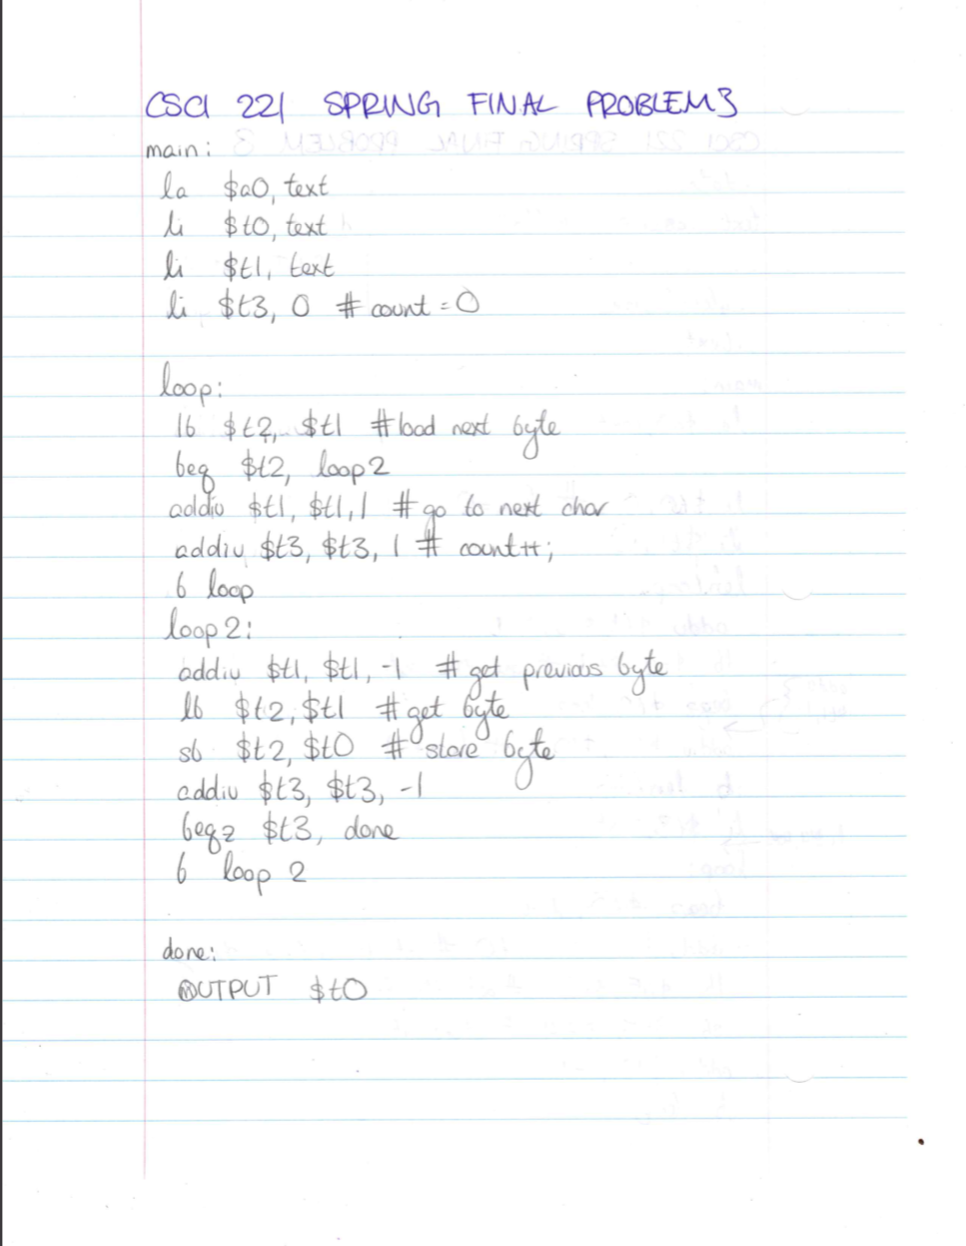 CSCI 221 SPRING FINAL PROBLEM 3
main:
la $a0, text
li $t0, text
li $t1, text
li $t3, 0 # count = 0
loop:
lb $t2, $t1 # load next byte
beq $t2, loop2
addiu $t1, $t1, 1 # go to next char
addiu $t3, $t3, 1 # count++;
b loop
loop2:
addiu $t1, $t1, -1 # get previous byte
lb $t2, $t1 # get byte
sb $t2, $t0 # store byte
addiu $t3, $t3, -1
beqz $t3, done
b loop 2
done:
OUTPUT $t0